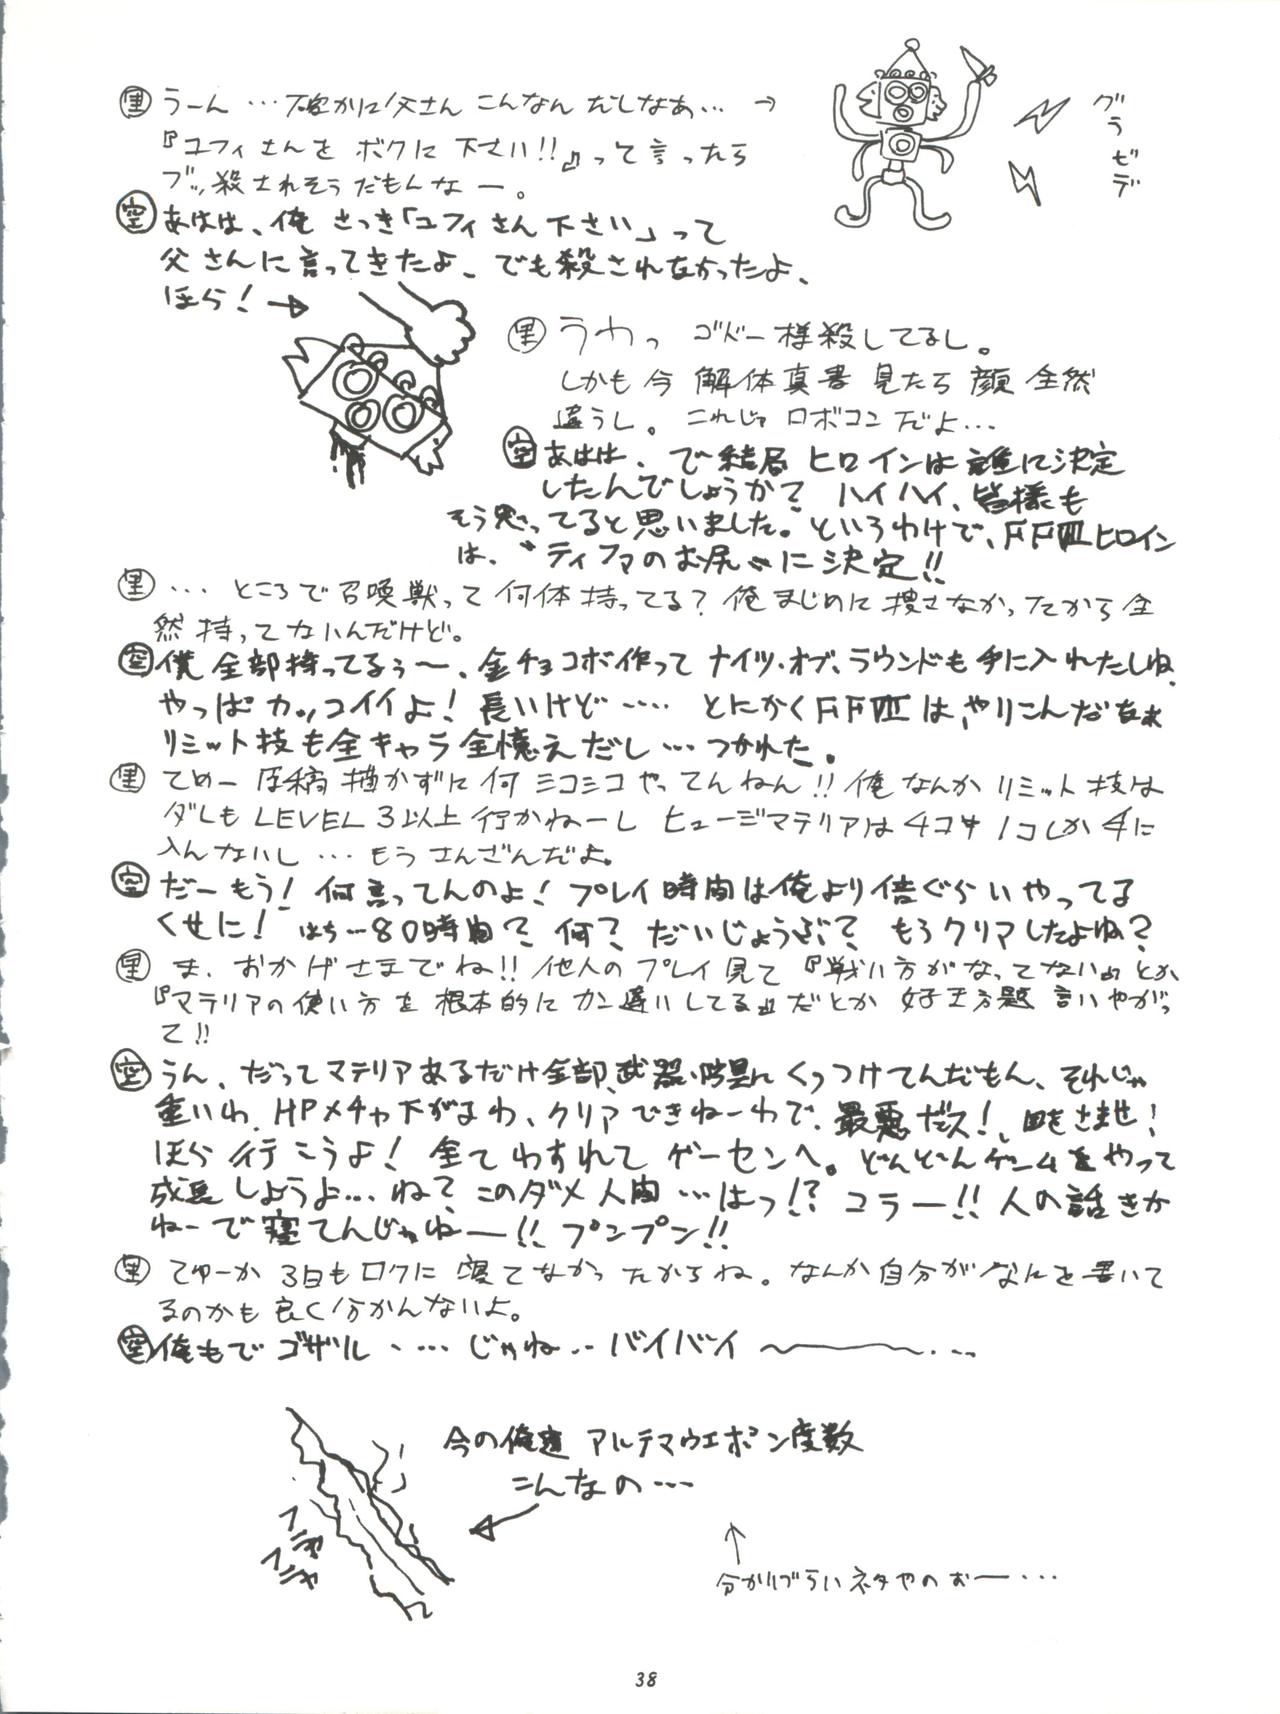 里 うーん…確かに父さん こんなんだしなぁ… →
『ユフィさんを ボクに 下さい!!』って言ったら
ブッ殺されそうだもんなー。
グラビデ
空 あはは、俺 さっき「ユフィさん下さい」って
父さんに言ってきたよ、でも殺されなかったよ、
ほら! →
里 うわっ ゴドー様殺してるし。
しかも今 解体真書 見たら 顔 全然
違うし。これじゃ ロボコンだよ…
空 あはは、で結局 ヒロインは 誰に決定
したんでしょうか? ハイハイ、皆様も
そう思ってると思いました。というわけで、FFⅦヒロイン
は、〝ティファのお尻〟に決定!!
里 … ところで召喚獣って 何体持ってる? 俺まじめに 捜さなかったから全
然持ってないんだけど。
空 僕 全部持ってるぅ〜、金チョコボ作って ナイツ・オブ・ラウンドも手に入れたしね、
やっぱカッコイイよ! 長いけど…… とにかくFFⅦは、やりこんだなぁ
リミット技も全キャラ全憶えだし…つかれた。
里 てめー 原稿 描かずに何 ニコニコやってんねん!! 俺なんか リミット技は
ダレもLEVEL 3以上 行かねーし ヒュージマテリアは 4コ中1コしか手に
入んないし… もう さんざんだよ。
空 だーもう! 何言ってんのよ! プレイ時間は俺より倍ぐらいやってる
くせに! はち…80時間? 何? だいじょうぶ? もうクリアしたよね?
里 ま、おかげさまでね!! 他人の プレイ見て『戦い方がなってない』とか
『マテリアの使い方を 根本的に カン違いしてる』だとか 好き放題 言いやがっ
て!!
空 うん、だってマテリアあるだけ全部、武器・防具にくっつけてんだもん、それじゃ
重いわ、HPメチャ下がるわ、クリアできねーわで、最悪だス! 目をさませ!
ほら 行こうよ! 全てわすれて ゲーセンへ。どんどんゲームをやって
成長しようよ… ね? このダメ人間 …はっ!? コラー!! 人の話きか
ねーで寝てんじゃねー!! プンプン!!
里 てゆーか 3日もロクに 寝てなかったからね。なんか自分がなにを書いて
るのかも良く分かんないよ。
空 俺もでゴザル …… じゃね… バイバイ〜
今の俺達 アルテマウエポン度数
こんなの…
フニャ
フニャ
↑
分かりづらいネタやのぉー…
38